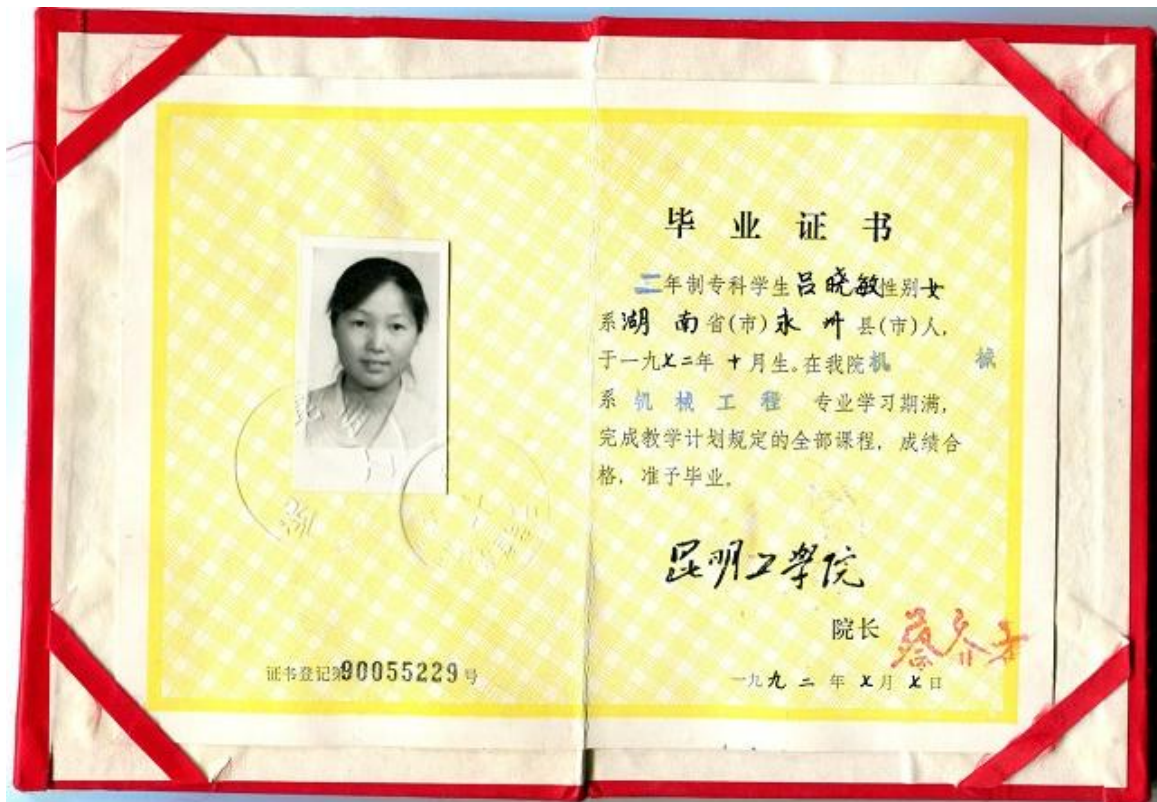 毕业证书
二年制专科学生吕晓敏性别女
系湖南省(市)永州县(市)人,
于一九七二年十月生。在我院机械
系机械工程专业学习期满,
完成教学计划规定的全部课程, 成绩合
格, 准予毕业。
昆明工学院
院长
证书登记第90055229号
一九九二年七月七日